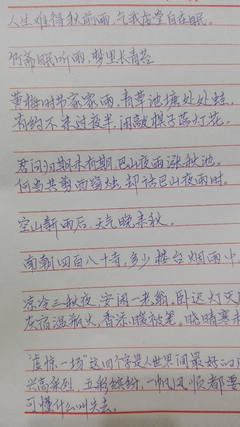 人生难得秋前雨,乞我虚堂自在眠。
何当眠听雨,梦里长青苔
黄梅时节家家雨,青草池塘处处蛙。
有约不来过夜半,闲敲棋子落灯花。
君问归期未有期,巴山夜雨涨秋池。
何当共剪西窗烛,却话巴山夜雨时。
空山新雨后,天气晚来秋。
南朝四百八十寺,多少楼台烟雨中
凉冷三秋夜,安闲一老翁,卧迟灯灭
灰宿温瓶火,香添暖被笼。晓晴寒未
“虚惊一场”这四个字是人世间最好的
兴高采烈,五彩缤纷,一帆风顺都要
可懂什么叫失去。